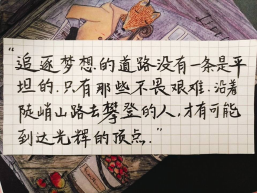 “追逐梦想的道路没有一条是平
坦的.只有那些不畏艰难.沿着
陡峭山路去攀登的人,才有可能
到达光辉的顶点.”